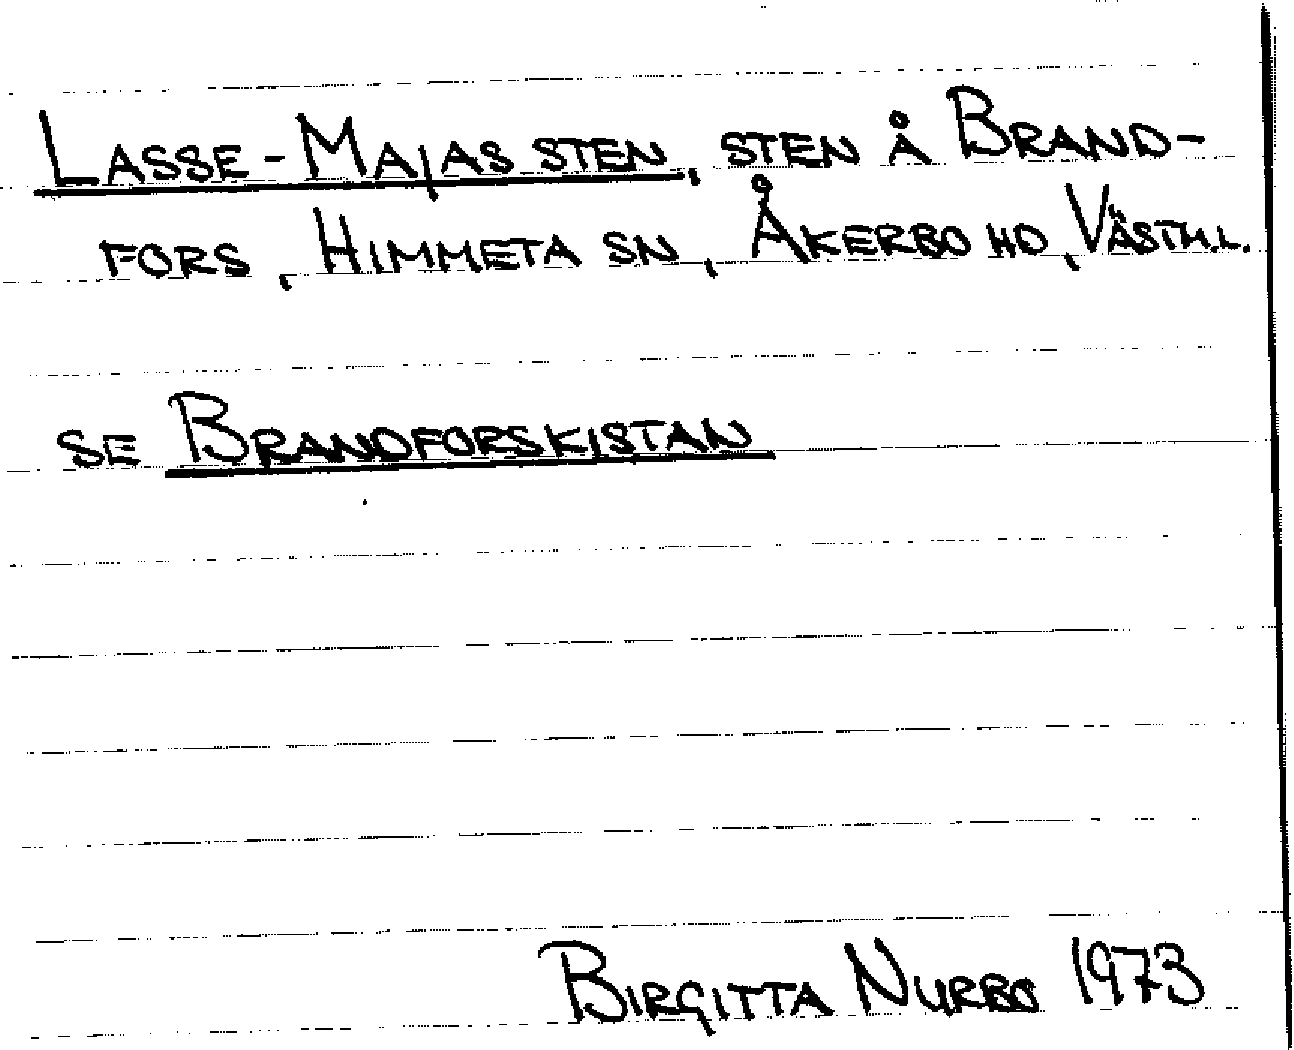 LASSE-MAJAS STEN, STEN Å BRAND-
FORS, HIMMETA SN, ÅKERBO HD, VÄSTM.L.
SE BRANDFORSKISTAN
BIRGITTA NURBO 1973